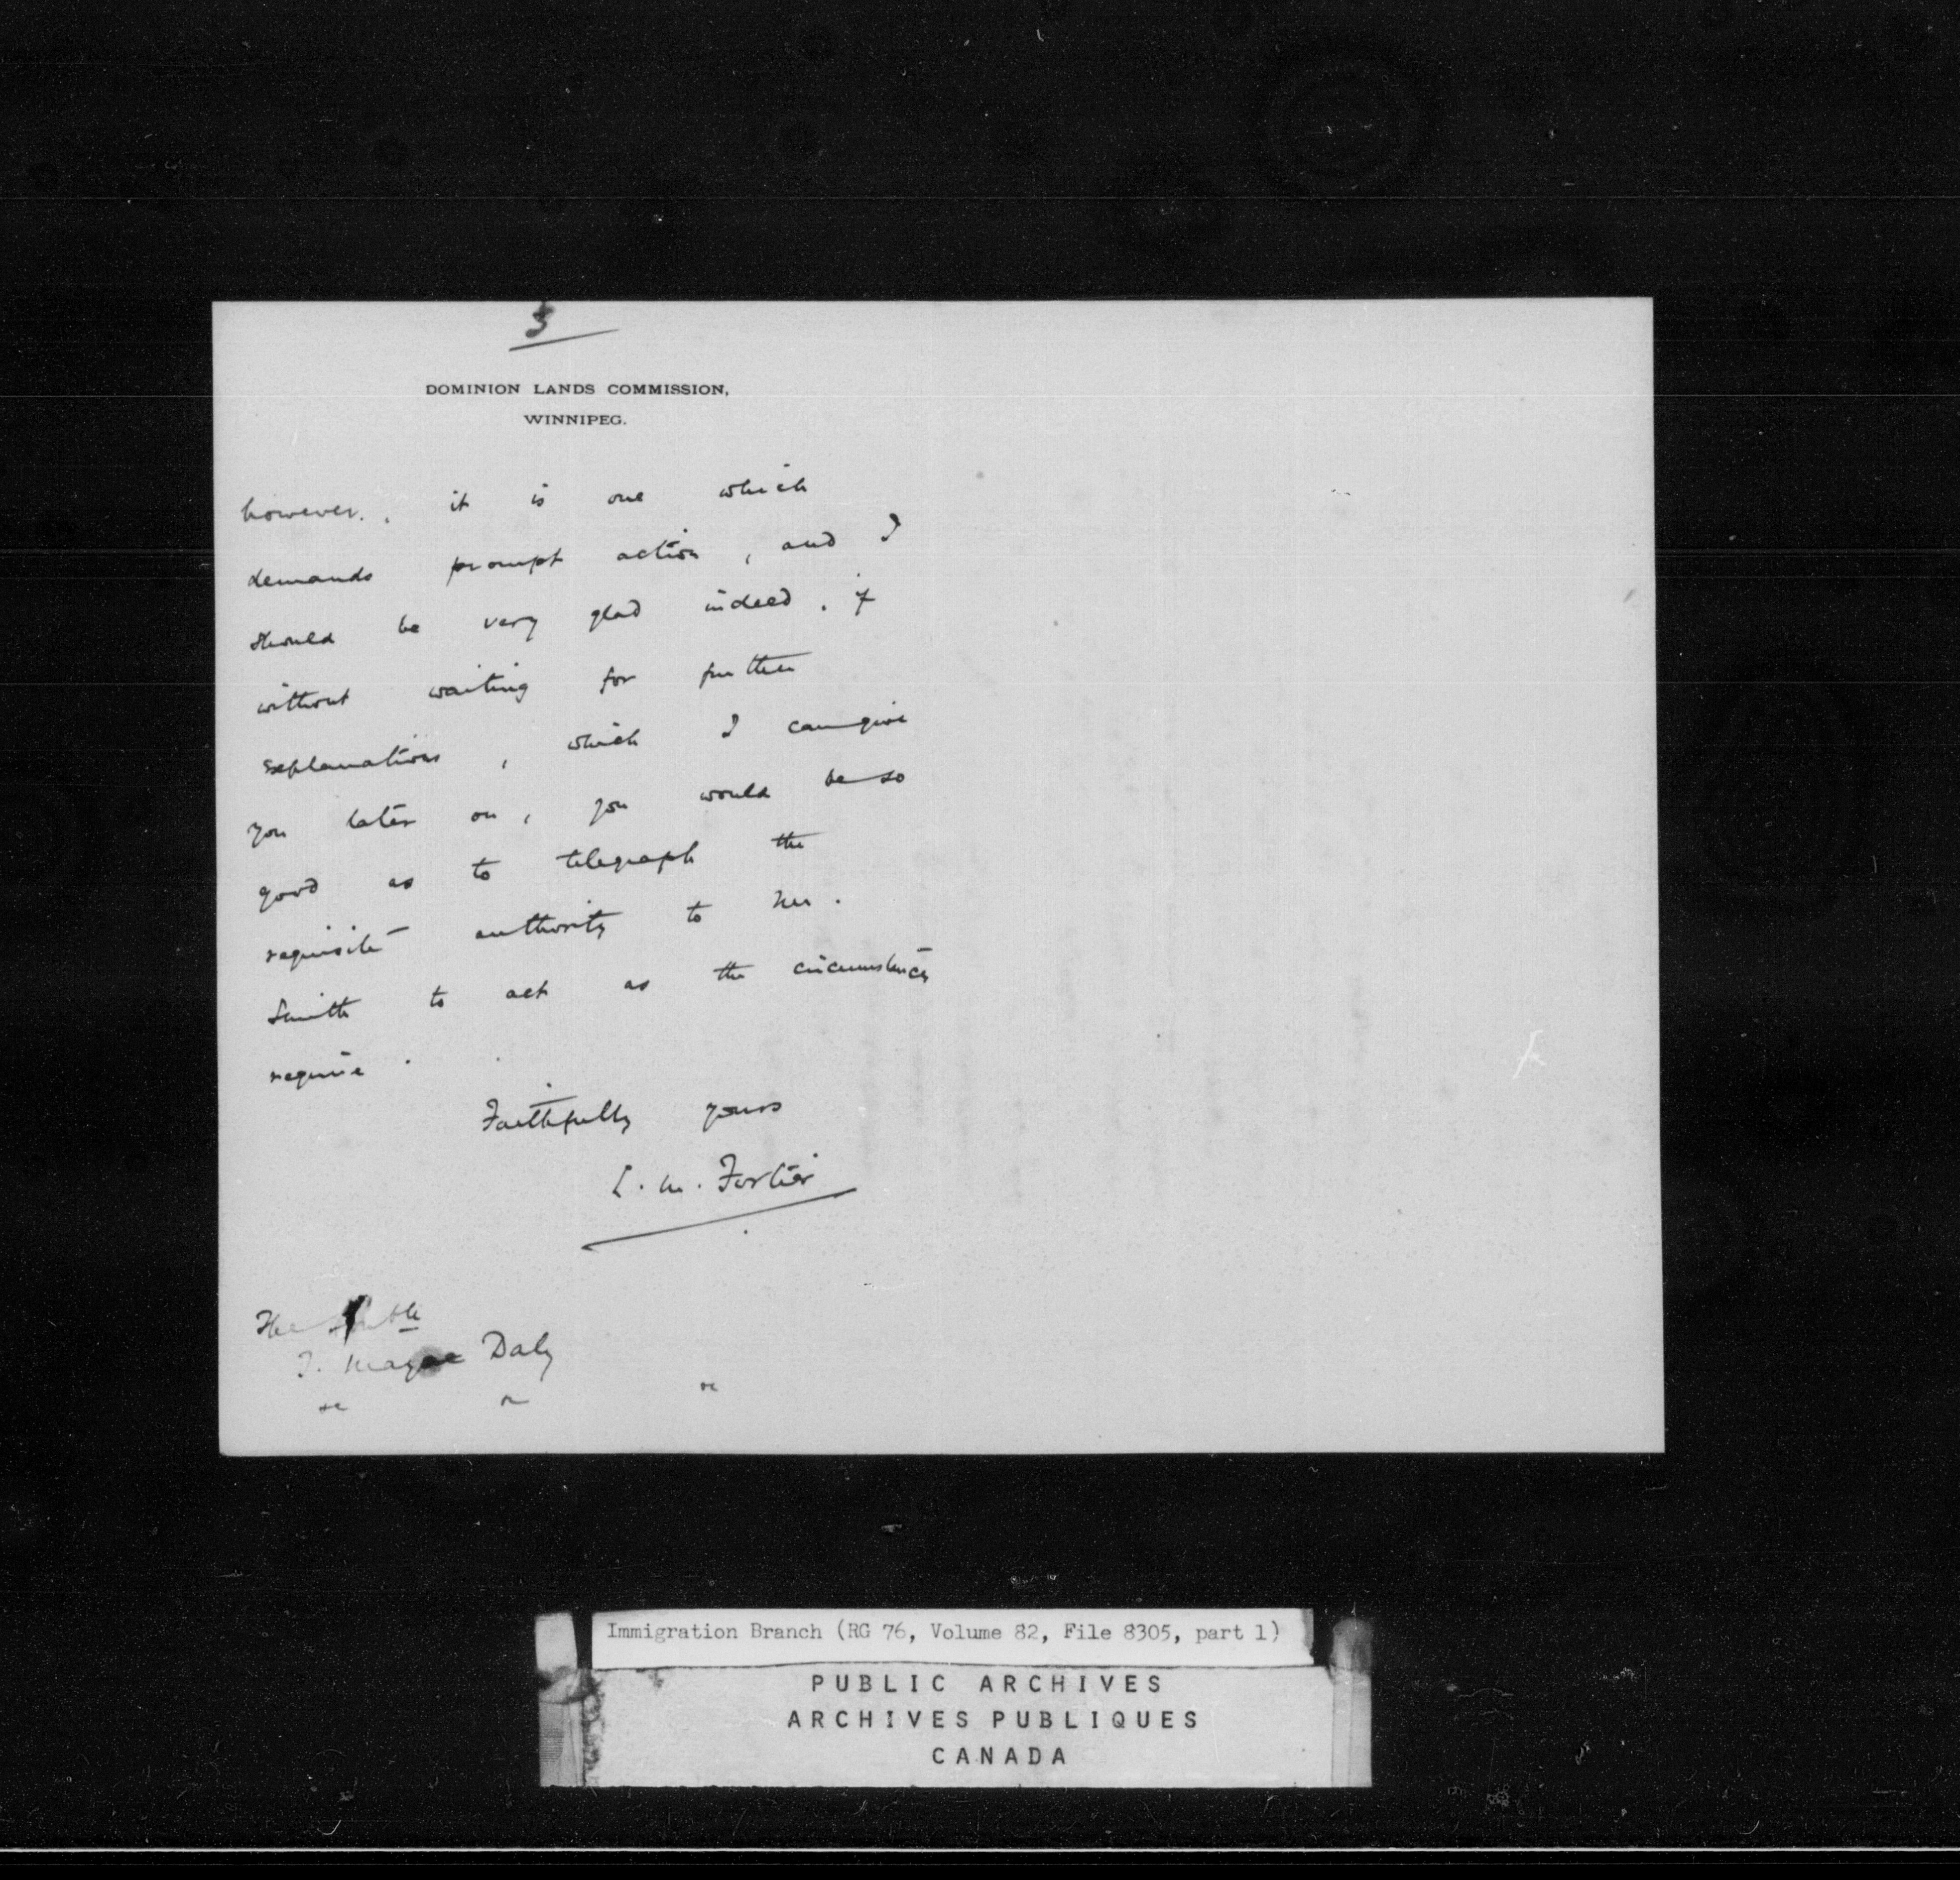 3
DOMINION LANDS COMMISSION,
WINNIPEG.
however, it is one which
demands prompt action, and I
should be very glad indeed, if
without waiting for further
explanations, which I can give
you later on, you would be so
good as to telegraph the
requisite authority to Mr.
Smith to act as the circumstances
require.
Faithfully yours
L. M. Fortier
The Honble
T. Mayne Daly
Immigration Branch (RG 76, Volume 82, File 8305, part 1)
PUBLIC ARCHIVES
ARCHIVES PUBLIQUES
CANADA